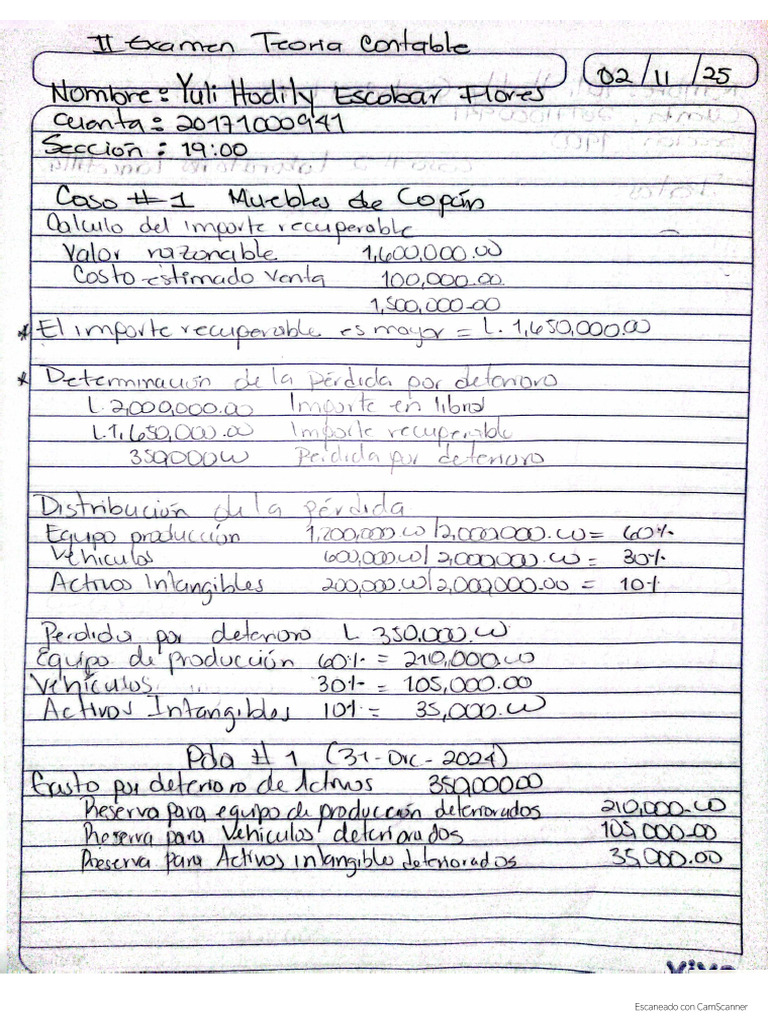 II Examen Teoria Contable
02/11/25
Nombre: Yuli Hodily Escobar Flores
Cuenta: 20171000941
Sección: 19:00
Caso #1 Muebles de Copán
Calculo del importe recuperable
Valor razonable 1,600,000.00
Costo estimado venta 100,000.00
1,500,000.00
* El importe recuperable es mayor = L. 1,650,000.00
* Determinación de la pérdida por deterioro
L. 2,000,000.00 Importe en libros
L. 1,650,000.00 Importe recuperable
350,000.00 Perdida por deterioro
Distribución de la pérdida
Equipo producción 1,200,000.00/2,000,000.00 = 60%
Vehiculos 600,000.00/2,000,000.00 = 30%
Activos Intangibles 200,000.00/2,000,000.00 = 10%
Perdida por deterioro L 350,000.00
Equipo de producción 60% = 210,000.00
Vehículos 30% = 105,000.00
Activos Intangibles 10% = 35,000.00
Pda #1 (31-Dic-2024)
Gasto por deterioro de Activos 350,000.00
Reserva para equipo de producción deteriorados 210,000.00
Reserva para Vehiculos deteriorados 105,000.00
Reserva para Activos intangible deteriorados 35,000.00
Escaneado con CamScanner